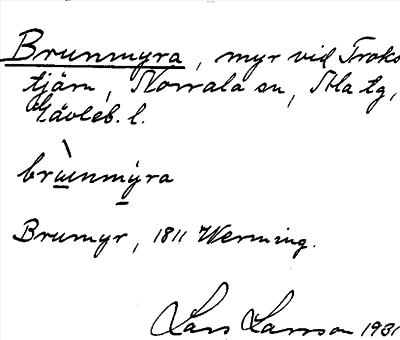 Brunmyra, myr vid Trok
tjärn, Norrala sn, Ala tg,
Gävleb. l.
brùunmýra
Brumyr, 1811 Werming.
Lars Larsson 1931